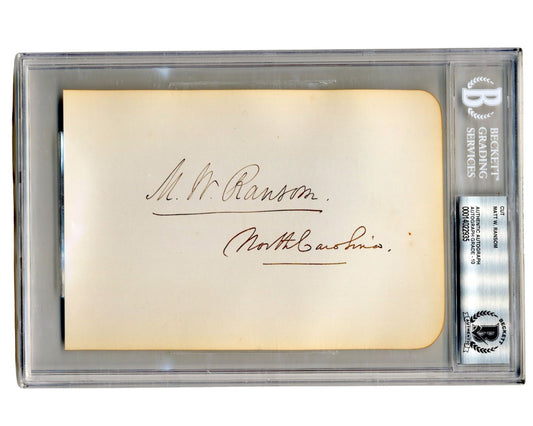 M. W. Ransom.
North Carolina.
B
BECKETT
GRADING
SERVICES
CUT
MATT W. RANSOM
AUTHENTIC AUTOGRAPH
AUTOGRAPH GRADE - 10
0001402935
BECKETT